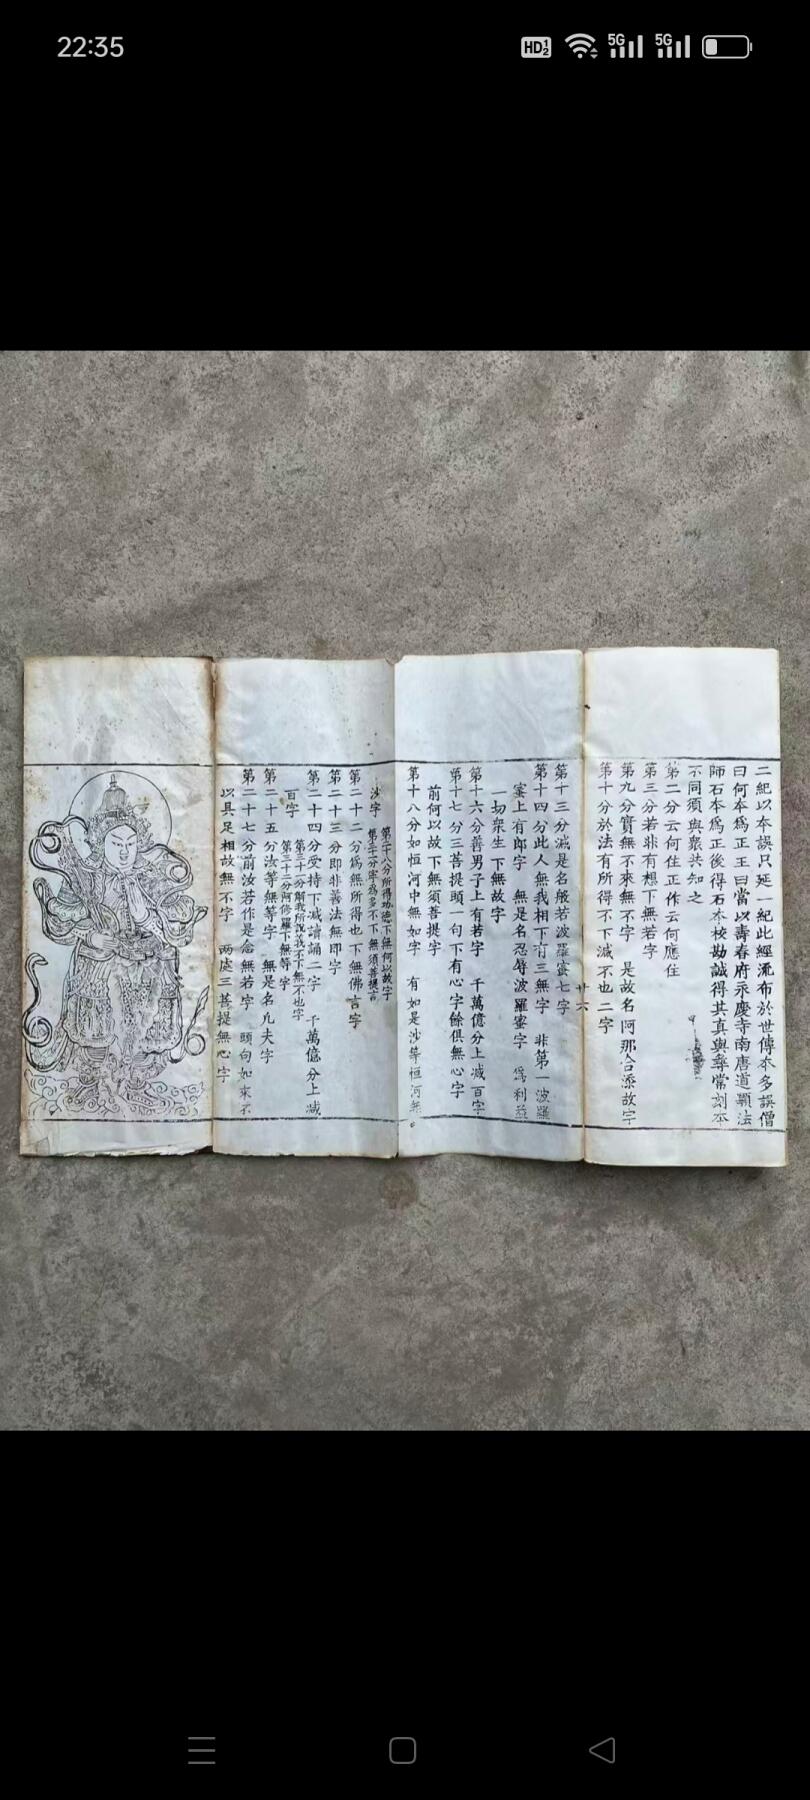 22:35
二紀以本誤只延一紀此經流布於世傳本多誤僧
曰何本為正王曰當以壽春府永慶寺南唐道顒法
師石本為正後得石本校勘誠得其真與尋常刻本
不同須與眾共知之
第二分云何住正作云何應住
第三分若非有想下無若字
第九分實無不來無不字 是故名阿那含添故字
第十分於法有所得不下減不也二字
廿六
第十三分減是名般若波羅蜜七字
第十四分此人無我相下有三無字 非第一波羅
蜜上有即字 無是名忍辱波羅蜜字 為利益
一切眾生下無故字
第十六分善男子上有若字 千萬億分上減百字
第十七分三菩提頭一句下有心字餘俱無心字
前何以故下無須菩提字
第十八分如恒河中無如字 有如是沙等恒河無
沙字
第二十八分所得功德下無何以故字
第三十分寧為多不下無須菩提言
第二十二分為無所得也下無佛言字
第二十三分即非善法無即字
第二十四分受持下減讀誦二字 千萬億分上減
百字
第三十一分解我所說義不下無不也字
第三十二分阿修羅下無等字
第二十五分法等無等字 無是名凡夫字
第二十七分前汝若作是念無若字 頭句如來不
以具足相故無不字 兩處三菩提無心字